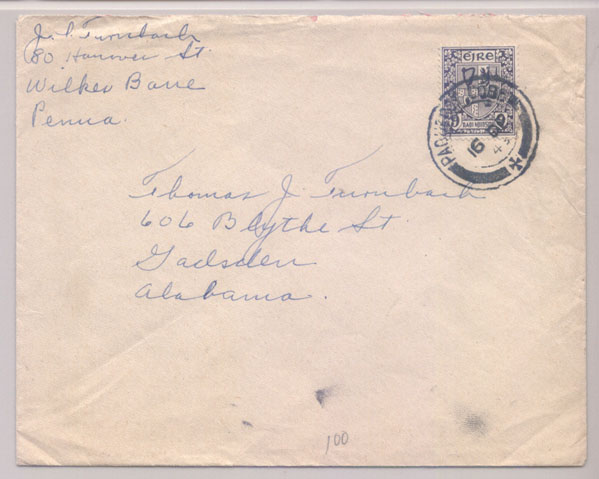 J. P. Turnbach
80 Hanover St.
Wilkes Barre
Penna.
ÉIRE
9 9
PAQUEBOT
COBH
15
Thomas J. Turnbach
606 Blythe St.
Gadsden
Alabama.
100